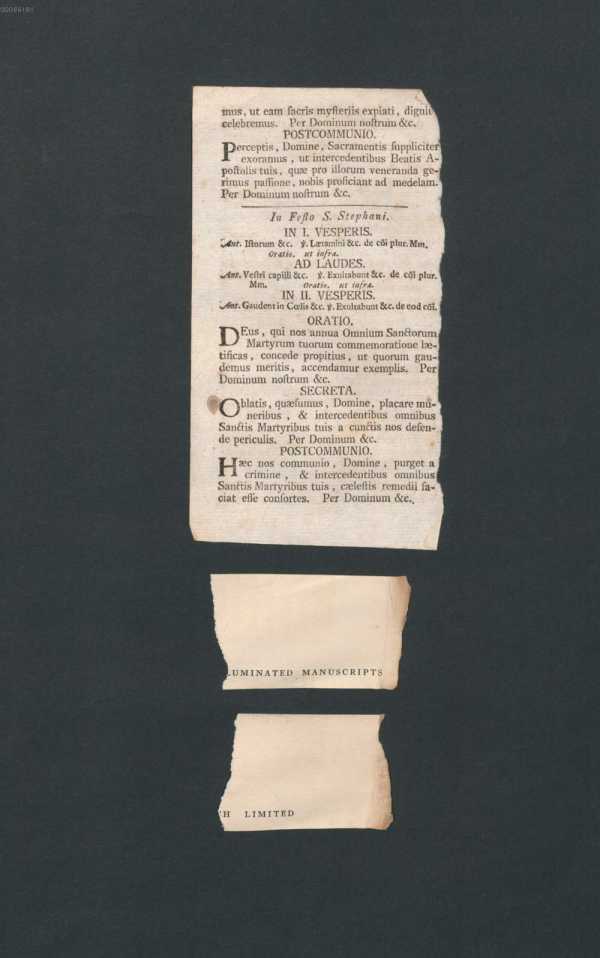 mus, ut eam sacris mysteriis expiati, digni
celebremus. Per Dominum nostrum &c.
POSTCOMMUNIO.
Perceptis, Domine, Sacramentis suppliciter
exoramus, ut intercedentibus Beatis A-
postolis tuis, quæ pro illorum veneranda ge-
rimus passione, nobis proficiant ad medelam.
Per Dominum nostrum &c.
In Festo S. Stephani.
IN I. VESPERIS.
Ant. Istorum &c. ℣. Lætamini &c. de cõi plur. Mm.
Oratio. ut infra.
AD LAUDES.
Ant. Vestri capilli &c. ℣. Exultabunt &c. de cõi plur.
Mm. Oratio. ut infra.
IN II. VESPERIS.
Ant. Gaudent in Cœlis &c. ℣. Exultabunt &c. de eod cõi.
ORATIO.
DEus, qui nos annua Omnium Sanctorum
Martyrum tuorum commemoratione læ-
tificas, concede propitius, ut quorum gau-
demus meritis, accendamur exemplis. Per
Dominum nostrum &c.
SECRETA.
Oblatis, quæsumus, Domine, placare mu-
neribus, & intercedentibus omnibus
Sanctis Martyribus tuis a cunctis nos defen-
de periculis. Per Dominum &c.
POSTCOMMUNIO.
Hæc nos communio, Domine, purget a
crimine, & intercedentibus omnibus
Sanctis Martyribus tuis, cælestis remedii fa-
ciat esse consortes. Per Dominum &c.
LUMINATED MANUSCRIPTS
H LIMITED